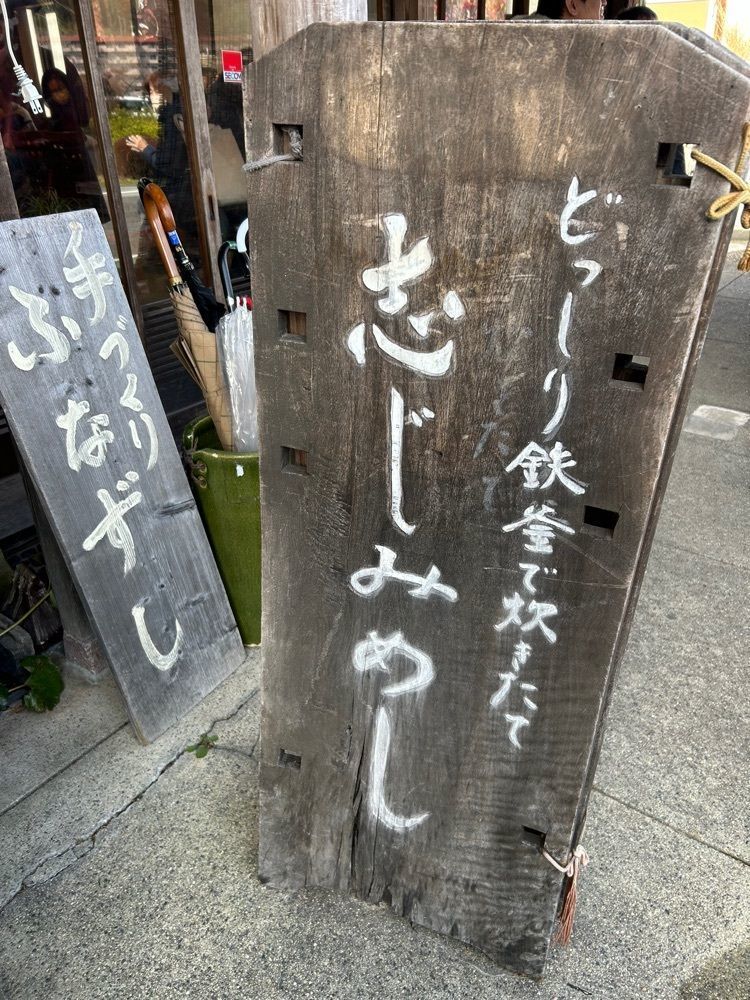 どっしり鉄釜で炊きたて
志じみめし
手づくり
ふなずし
SECOM